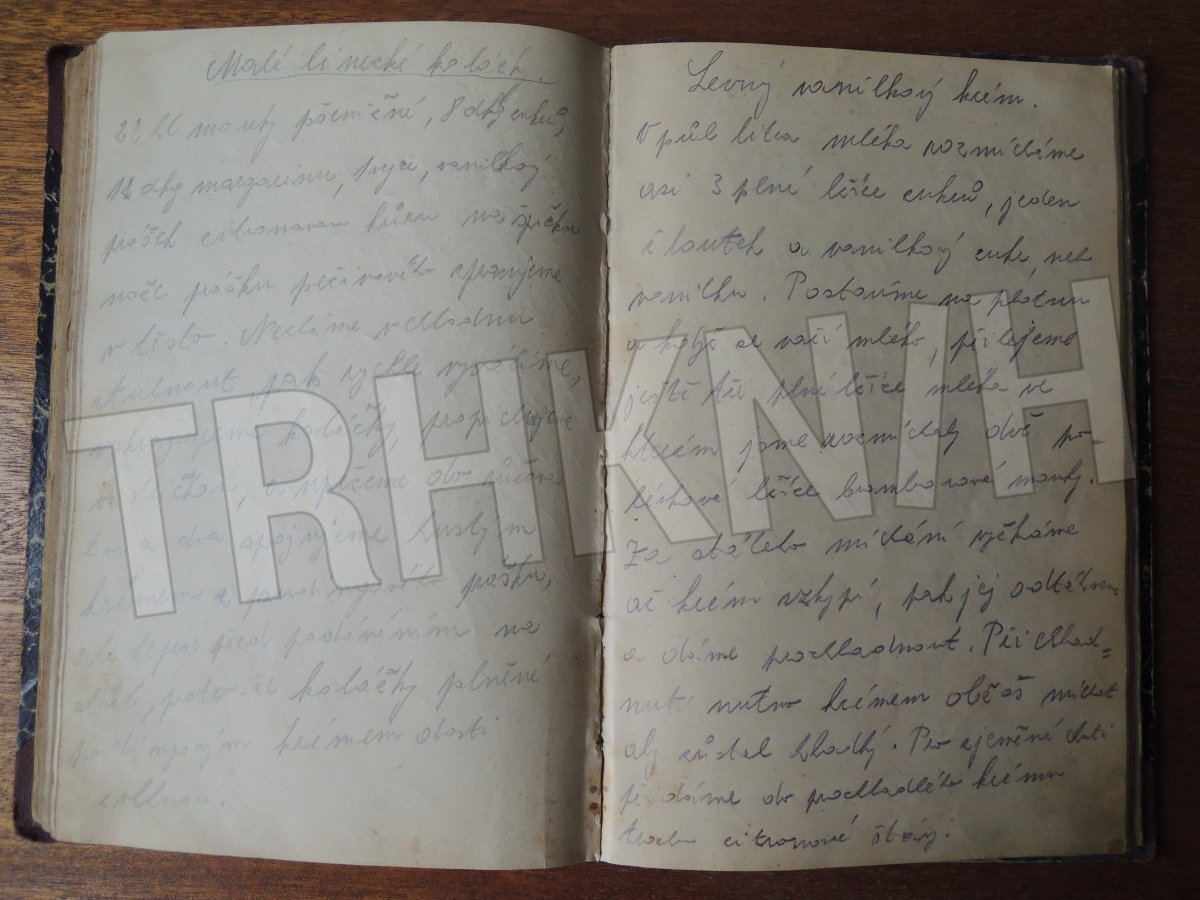 Malé linecké koláčky.
22 kl mouky pšeničné, 8 dkg cukru,
12 dkg margarinu, 1 vejce, vanilkový
prášek citronovou kůru na špičku
nože prášku pečivového zpracujeme
v těsto. Necháme v chladnu
ztuhnout, pak rychle vyválíme,
vykrajujeme kolečky, propichujeme
a upečeme do růžova
dva a dva spojujeme hustým
krémem z pudingového prášku,
ale teprve před podáváním na
stůl, koláčky plněné
pudingovým krémem dosti
vlhnou.
Levný vanilkový krém.
V půl litru mléka rozmícháme
asi 3 plné lžíce cukru, jeden
žloutek a vanilkový cukr, neb
vanilku. Postavíme na plotnu
a když se vaří mléko, přilejeme
ještě tři plné lžíce mléka ve
kterém jsme rozmíchaly dvě po-
lévkové lžíce bramborové mouky.
Za stálého míchání vyčkáme
až krém vzkypí, pak jej odtáhneme
a dáme prochladnout. Při chlad=
nutí nutno krémem občas míchat
aby zůstal hladký. Pro zjemnění chuti
přidáme do prochladlého krému
trochu citronové šťávy.
TRHKNIH